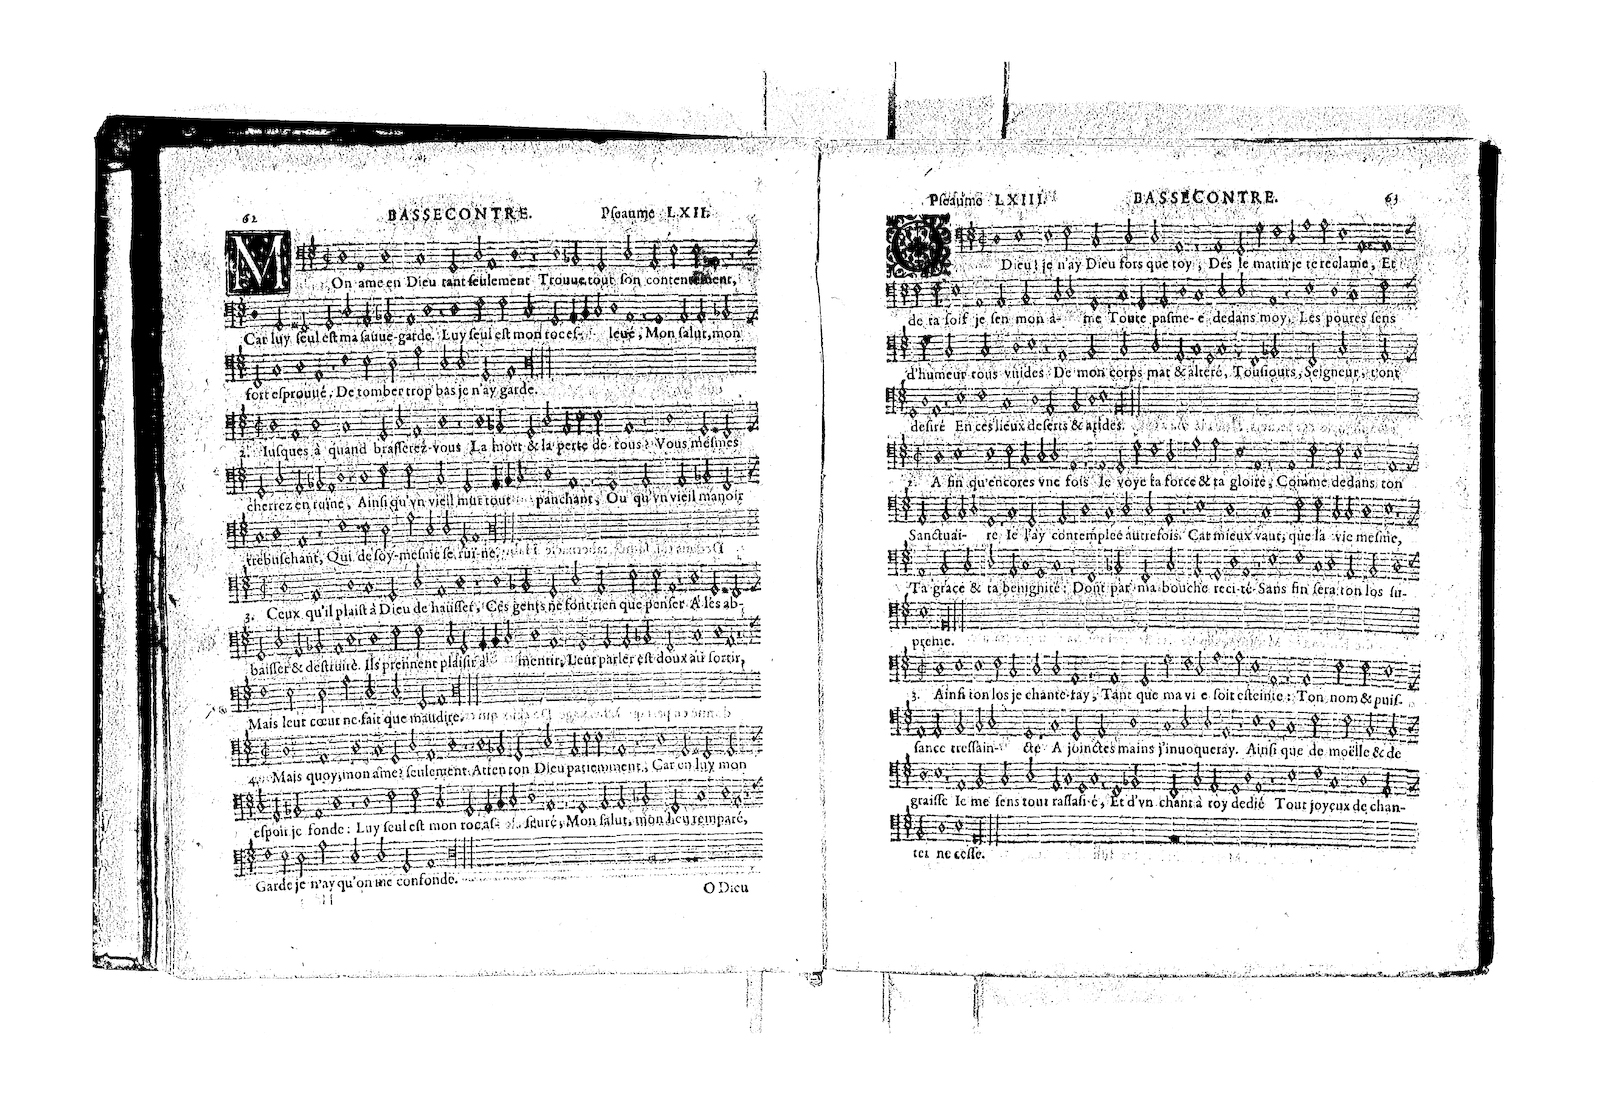 62 BASSECONTRE. Pſeaume LXII.
MOn ame en Dieu tant ſeulement Trouue tout ſon contentement,
Car luy ſeul eſt ma ſauue-garde. Luy ſeul eſt mon roc eſ- leué, Mon ſalut, mon
fort eſprouué, De tomber trop bas je n'ay garde.
2. Iuſques à quand braſſerez-vous La mort & la perte de tous? Vous meſmes
cherrez en ruine, Ainſi qu'vn vieil mur tout panchant, Ou qu'vn vieil manoir
trebuſchant, Qui de ſoy-meſme ſe rui-ne.
3. Ceux qu'il plaiſt à Dieu de hauſſer, Ces gents ne font rien que penſer A les ab-
baiſſer & deſtruire. Ils prennent plaiſir à mentir, Leur parler eſt doux au ſortir,
Mais leur cœur ne fait que maudire.
4. Mais quoy, mon ame? ſeulement Atten ton Dieu patiemment, Car en luy mon
eſpoir je fonde: Luy ſeul eſt mon roc aſ- ſeuré, Mon ſalut, mon lieu remparé,
Garde je n'ay qu'on me confonde.
O Dieu
Pſeaume LXIII. BASSECONTRE. 63
O Dieu! je n'ay Dieu fors que toy, Dés le matin je te reclame, Et
de ta ſoif je ſen mon a- me Toute paſme-e dedans moy, Les poures ſens
d'humeur tous vuides De mon corps mat & alteré, Touſiours, Seigneur, t'ont
deſiré En ces lieux deſerts & arides.
2. A fin qu'encores vne fois Ie voye ta force & ta gloire, Comme dedans ton
Sanctuai- re Ie l'ay contemplee autrefois. Car mieux vaut, que la vie meſme,
Ta grace & ta benignité: Dont par ma bouche reci-té Sans fin ſera ton los ſu-
preme.
3. Ainſi ton los je chante-ray, Tant que ma vi e ſoit eſteinte: Ton nom & puiſ-
ſance treſſain- cte A joinctes mains j'inuoqueray. Ainſi que de moëlle & de
graiſſe Ie me ſens tout raſſaſi-é, Et d'vn chant à toy dedié Tout joyeux de chan-
ter ne ceſſe.